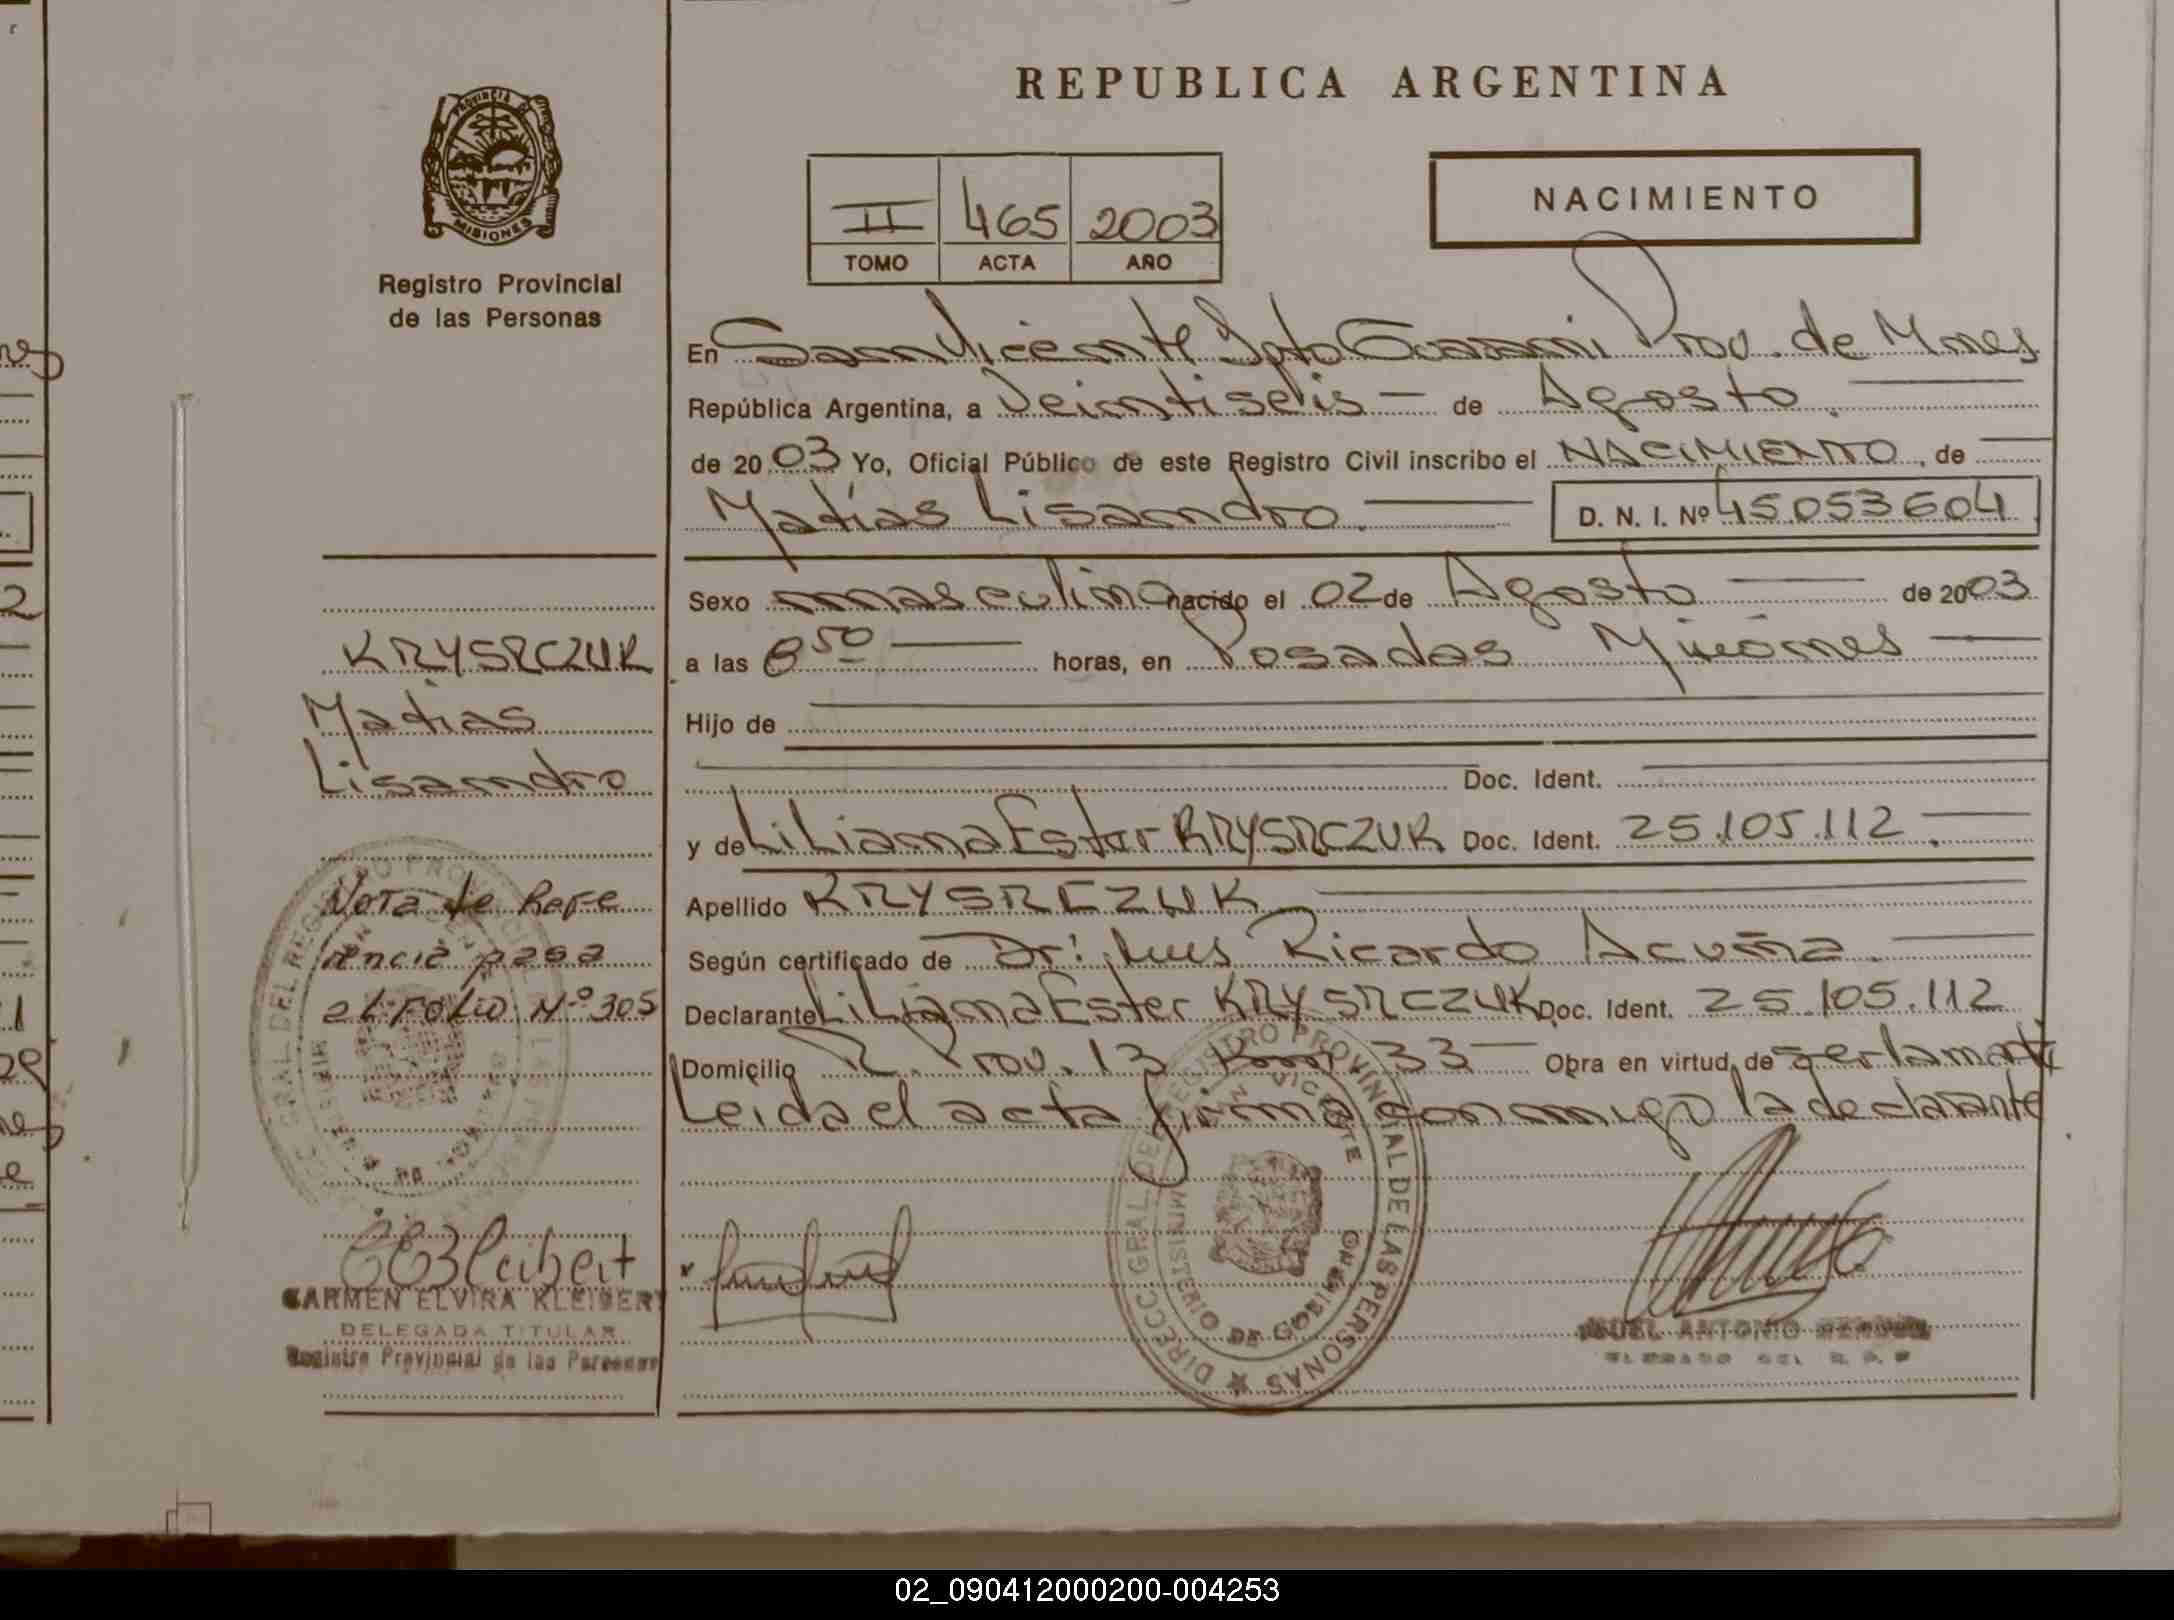 REPUBLICA ARGENTINA
PROVINCIA DE
MISIONES
Registro Provincial
de las Personas
II 465 2003
TOMO ACTA AÑO
NACIMIENTO
En San Vicente Dpto Guarani Prov. de Mnes
República Argentina, a Veintiseis de Agosto.
de 2003 Yo, Oficial Público de este Registro Civil inscribo el NACIMIENTO, de
Matias Lisandro. D. N. I. Nº 45053604
Sexo masculino nacido el 02 de Agosto de 2003
a las 8 50 horas, en Posadas Misiones
Hijo de
Doc. Ident.
y de Liliana Ester KRYSRCZUK Doc. Ident. 25.105.112.
Apellido KRYSRCZUK
Según certificado de Dr: Luis Ricardo Acuña.
Declarante Liliana Ester KRYSRCZUK Doc. Ident. 25.105.112
Domicilio R. Prov. 13 Km 33 Obra en virtud de ser la madre
Leida el acta firma conmigo la declarante
KRYSRCZUK
Matias
Lisandro
Nota de Refe
rencia pasa
al FOLIO Nº 305
CARMEN ELVIRA KLEIBERT
DELEGADA TITULAR
Registro Provincial de las Personas
DIRECC. GRAL. DEL REGISTRO PROVINCIAL DE LAS PERSONAS
SAN VICENTE
MINISTERIO DE GOBIERNO
ANTONIO
02_090412000200-004253